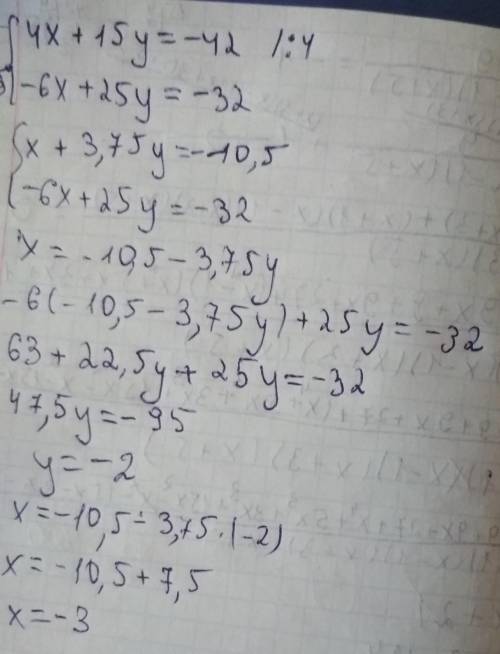 4x + 15y = -42 /:4
-6x + 25y = -32
x + 3,75y = -10,5
-6x + 25y = -32
x = -10,5 - 3,75y
-6(-10,5 - 3,75y) + 25y = -32
63 + 22,5y + 25y = -32
47,5y = -95
y = -2
x = -10,5 - 3,75·(-2)
x = -10,5 + 7,5
x = -3